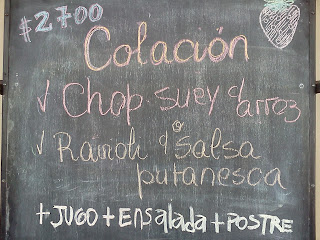 $2700
Colación
✓ Chop suey c/ arroz
✓ Ravioli c/ Salsa
putanesca
+ JUGO + Ensalada + POSTRE